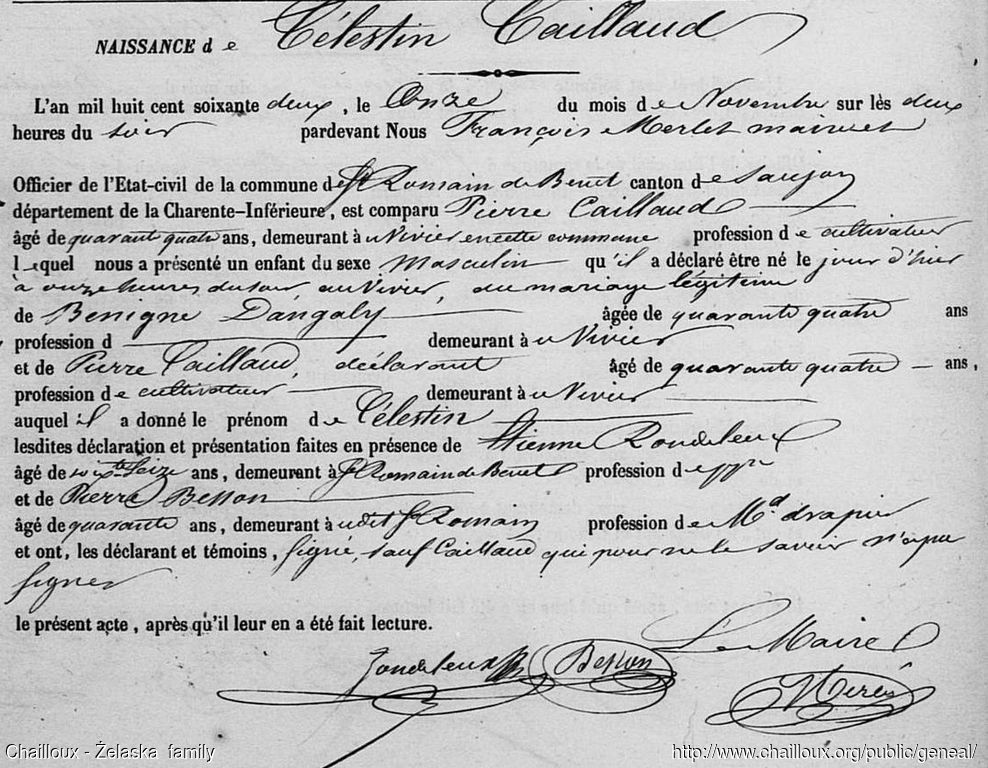 NAISSANCE de Célestin Caillaud
L'an mil huit cent soixante deux, le Onze du mois de Novembre sur lès deux
heures du soir pardevant Nous François Merlet maire et
Officier de l'Etat-civil de la commune de St Romain de Benet canton de Saujon
département de la Charente-Inférieure, est comparu Pierre Caillaud
âgé de quarante quatre ans, demeurant à u Vivier en cette commune profession de cultivateur
lequel nous a présenté un enfant du sexe masculin qu'il a déclaré être né le jour d'hier
à onze heures du soir, au Vivier, du mariage légitime
de Benigne Dangaly âgée de quarante quatre ans
profession d demeurant à u Vivier
et de Pierre Caillaud, déclarant âgé de quarante quatre ans,
profession de cultivateur demeurant à u Vivier
auquel il a donné le prénom de Célestin
lesdites déclaration et présentation faites en présence de Etienne Rondeleux
âgé de seize ans, demeurant à St Romain de Benet profession de ppre
et de Pierre Besson
âgé de quarante ans, demeurant à udit St Romain profession de Md drapier
et ont, les déclarant et témoins, signé, sauf Caillaud qui pour ne le savoir n'a pu
signer
le présent acte, après qu'il leur en a été fait lecture.
Le Maire
Rondeleux Besson
Chailloux - Żelaska family
http://www.chailloux.org/public/geneal/